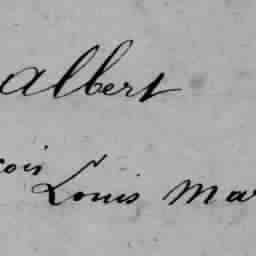 albert
çois Louis Mar